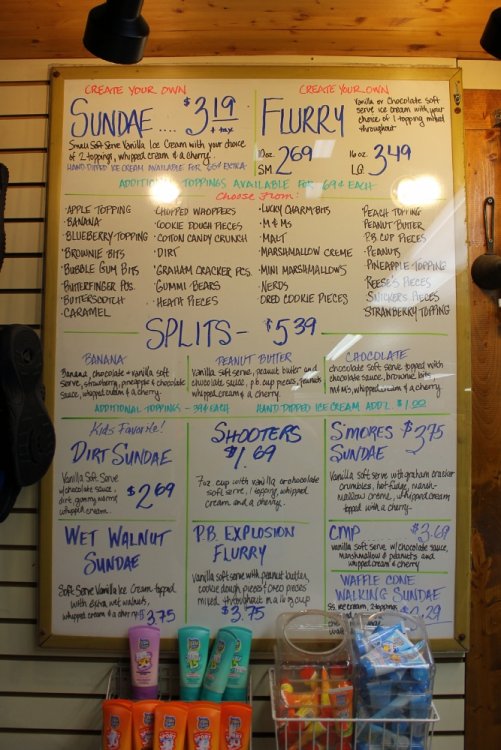 CREATE YOUR OWN
SUNDAE .... $3.19
+ tax
Small Soft Serve Vanilla Ice Cream with your choice
of 2 toppings, whipped cream & a cherry.
HAND DIPPED ICE CREAM AVAILABLE FOR 65¢ EXTRA
CREATE YOUR OWN
FLURRY
Vanilla or Chocolate Soft
serve ice cream with your
choice of 1 topping mixed
throughout
10oz. SM 2.69
16oz. LG. 3.49
ADDITIONAL TOPPINGS AVAILABLE FOR 69¢ EACH
Choose From:
· APPLE TOPPING
· BANANA
· BLUEBERRY TOPPING
· BROWNIE BITS
· BUBBLE GUM BITS
· BUTTERFINGER PCS.
· BUTTERSCOTCH
· CARAMEL
· CHOPPED WHOPPERS
· COOKIE DOUGH PIECES
· COTTON CANDY CRUNCH
· DIRT
· GRAHAM CRACKER PCS.
· GUMMI BEARS
· HEATH PIECES
· LUCKY CHARM BITS
· M & Ms
· MALT
· MARSHMALLOW CREME
· MINI MARSHMALLOWS
· NERDS
· OREO COOKIE PIECES
· PEACH TOPPING
· PEANUT BUTTER
· P.B. CUP PIECES
· PEANUTS
· PINEAPPLE TOPPING
· REESE'S PIECES
· SNICKERS PIECES
· STRAWBERRY TOPPING
SPLITS - $5.39
BANANA
Banana, chocolate & vanilla soft
serve, strawberry, pineapple & chocolate
sauce, whipped cream & a cherry.
PEANUT BUTTER
Vanilla soft serve, peanut butter and
chocolate sauce, p.b. cup pieces, peanuts
whipped cream & a cherry.
CHOCOLATE
chocolate soft serve topped with
chocolate sauce, brownie bits,
m&ms, whipped cream & a cherry.
ADDITIONAL TOPPINGS - 39¢ EACH
HAND DIPPED ICE CREAM ADD'L $1.00
Kids Favorite!
DIRT SUNDAE
Vanilla Soft Serve
w/chocolate sauce,
dirt, gummy worms,
whipped cream.
$2.69
SHOOTERS
$1.69
7oz. cup with vanilla or chocolate
soft serve, 1 topping, whipped
cream and a cherry.
S'MORES $3.75
SUNDAE
Vanilla soft serve with graham cracker
crumbles, hot fudge, marsh-
mallow creme, whipped cream
topped with a cherry.
WET WALNUT
SUNDAE
Soft Serve Vanilla Ice Cream topped
with extra wet walnuts,
whipped cream & a cherry $3.75
P.B. EXPLOSION
FLURRY
Vanilla soft serve with peanut butter,
cookie dough pieces & oreo pieces
mixed throughout in a 16 oz cup
$3.75
CMP $3.69
vanilla soft serve w/ chocolate sauce,
marshmallow & peanuts and
whipped cream & a cherry
WAFFLE CONE
WALKING SUNDAE
ice cream, 2 toppings